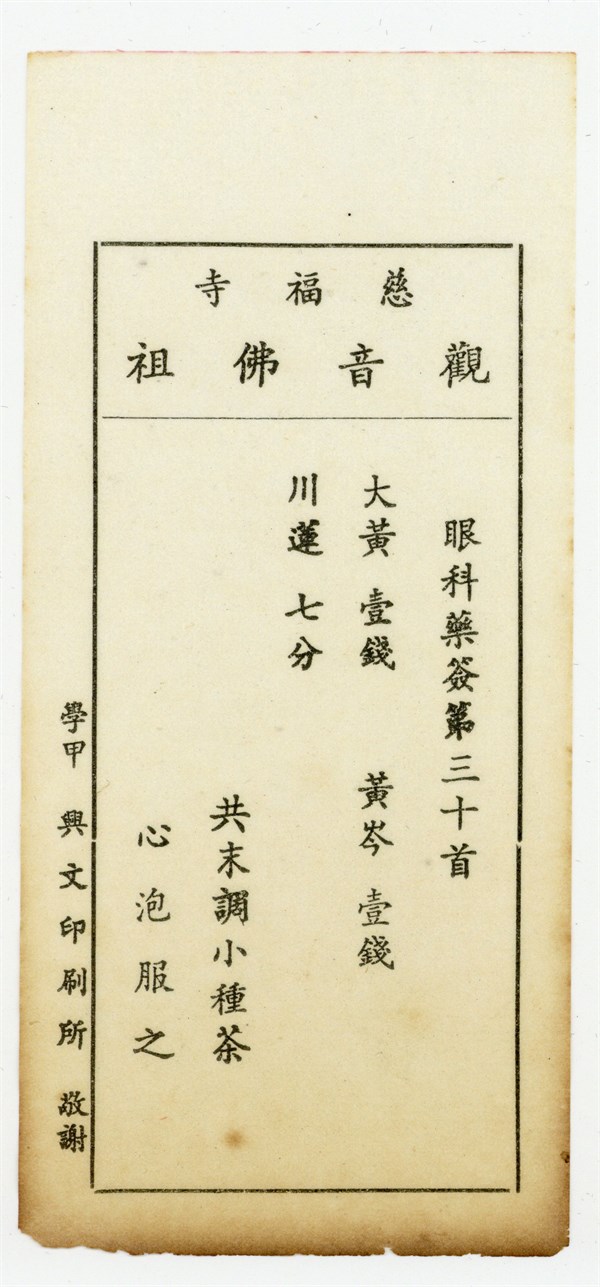 慈福寺
觀音佛祖
眼科藥簽第三十首
大黃 壹錢 黃岑 壹錢
川蓮 七分
共末調小種茶
心泡服之
學甲 興文印刷所 敬謝